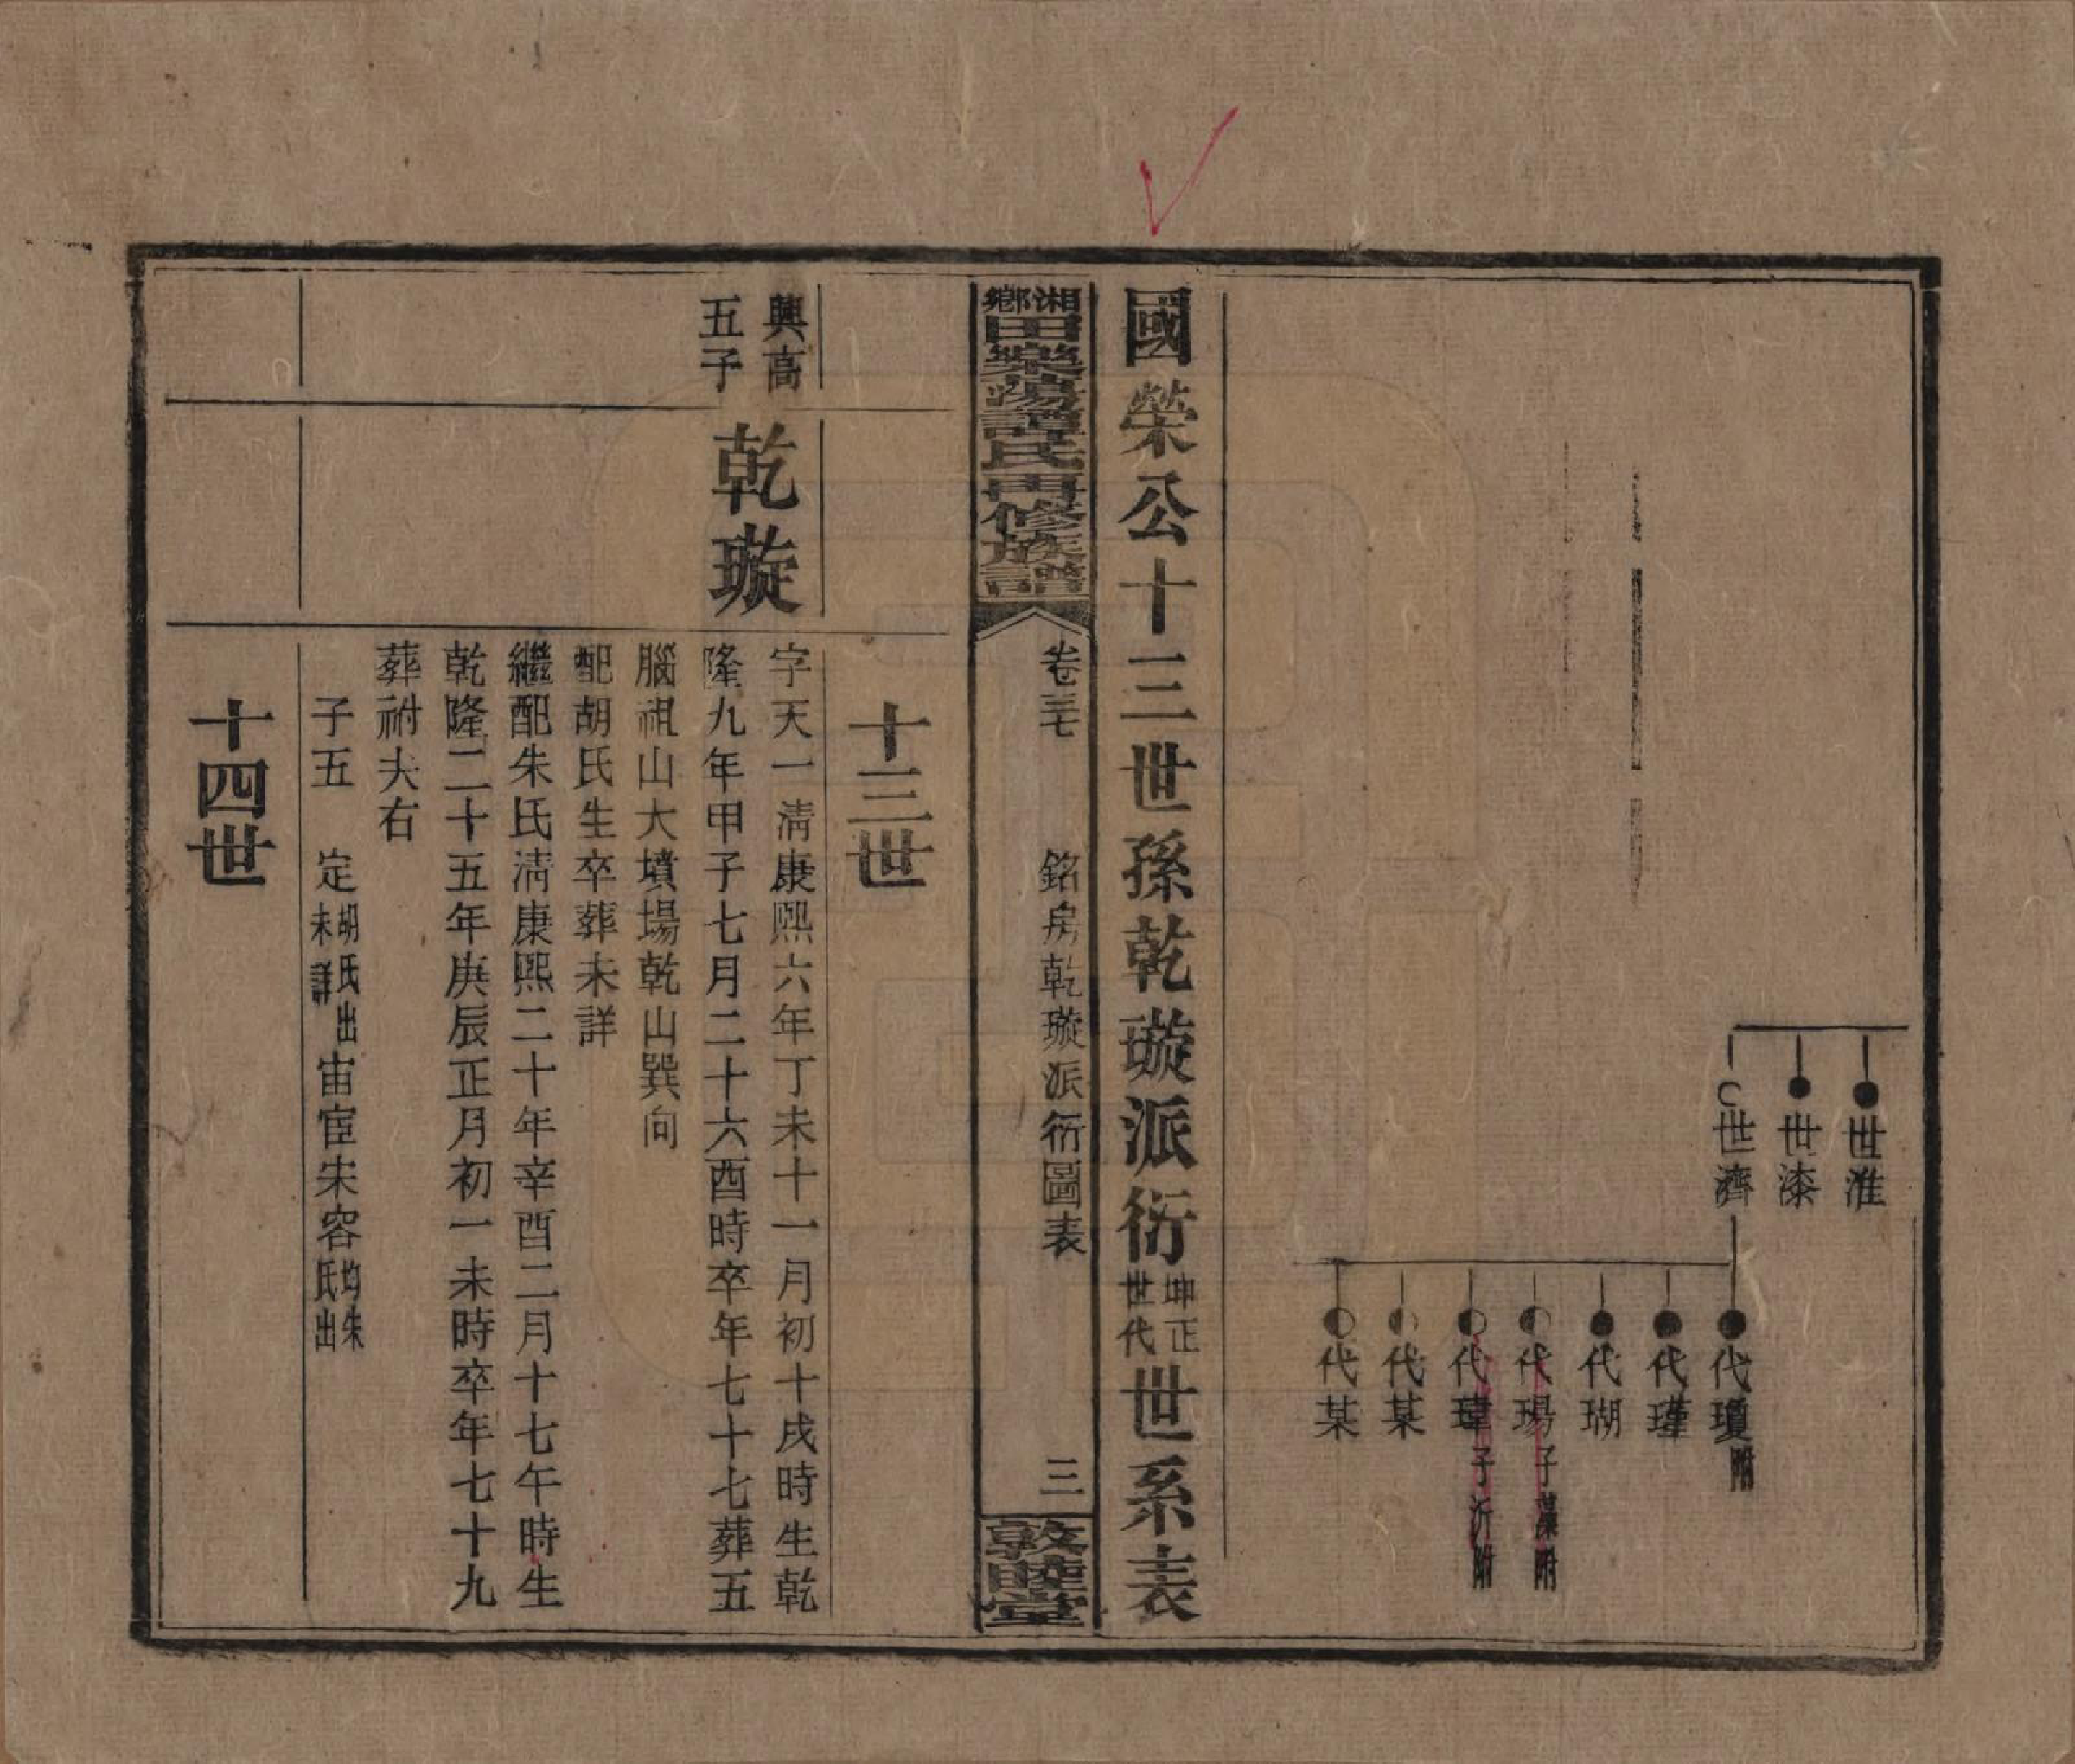 世淮
世漆
世濟
代瓊附
代瑾
代瑚
代瑒子藻附
代瑋子沂附
代某
代某
國榮公十三世孫乾璇派衍坤正世代世系表
湘鄉田樂湯譚氏再修族譜
卷三七　銘房乾璇派衍圖表　三
敦睦堂
十三世
興高
五子
乾璇
字天一淸康熙六年丁未十一月初十戌時生乾
隆九年甲子七月二十六酉時卒年七十七葬五
腦祖山大墳場乾山巽向
配胡氏生卒葬未詳
繼配朱氏淸康熙二十年辛酉二月十七午時生
乾隆二十五年庚辰正月初一未時卒年七十九
葬祔夫右
子五　定胡氏出未詳宙宦朱容均朱氏出
十四世